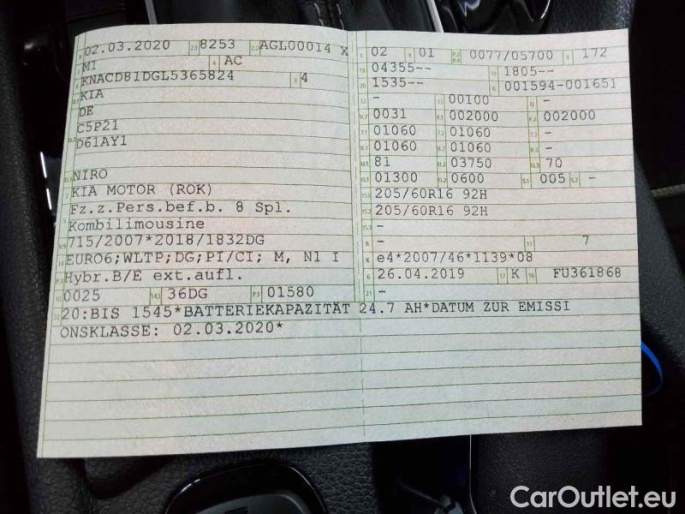 02.03.2020 8253 AGL00014 X
M1 AC
KNACD81DGL5365824 4
KIA
DE
C5P21
D61AY1
NIRO
KIA MOTOR (ROK)
Fz.z.Pers.bef.b. 8 Spl.
Kombilimousine
715/2007*2018/1832DG
EURO6;WLTP;DG;PI/CI; M, N1 I
Hybr.B/E ext.aufl.
0025 36DG 01580
02 01 0077/05700 172
04355-- 1805--
1535-- 001594-001651
- 00100 -
0031 002000 002000
01060 01060 -
01060 01060 -
81 03750 70
01300 0600 005 -
205/60R16 92H
205/60R16 92H
-
- 7
e4*2007/46*1139*08
26.04.2019 K FU361868
-
20:BIS 1545*BATTERIEKAPAZITÄT 24.7 AH*DATUM ZUR EMISSI
ONSKLASSE: 02.03.2020*
CarOutlet.eu